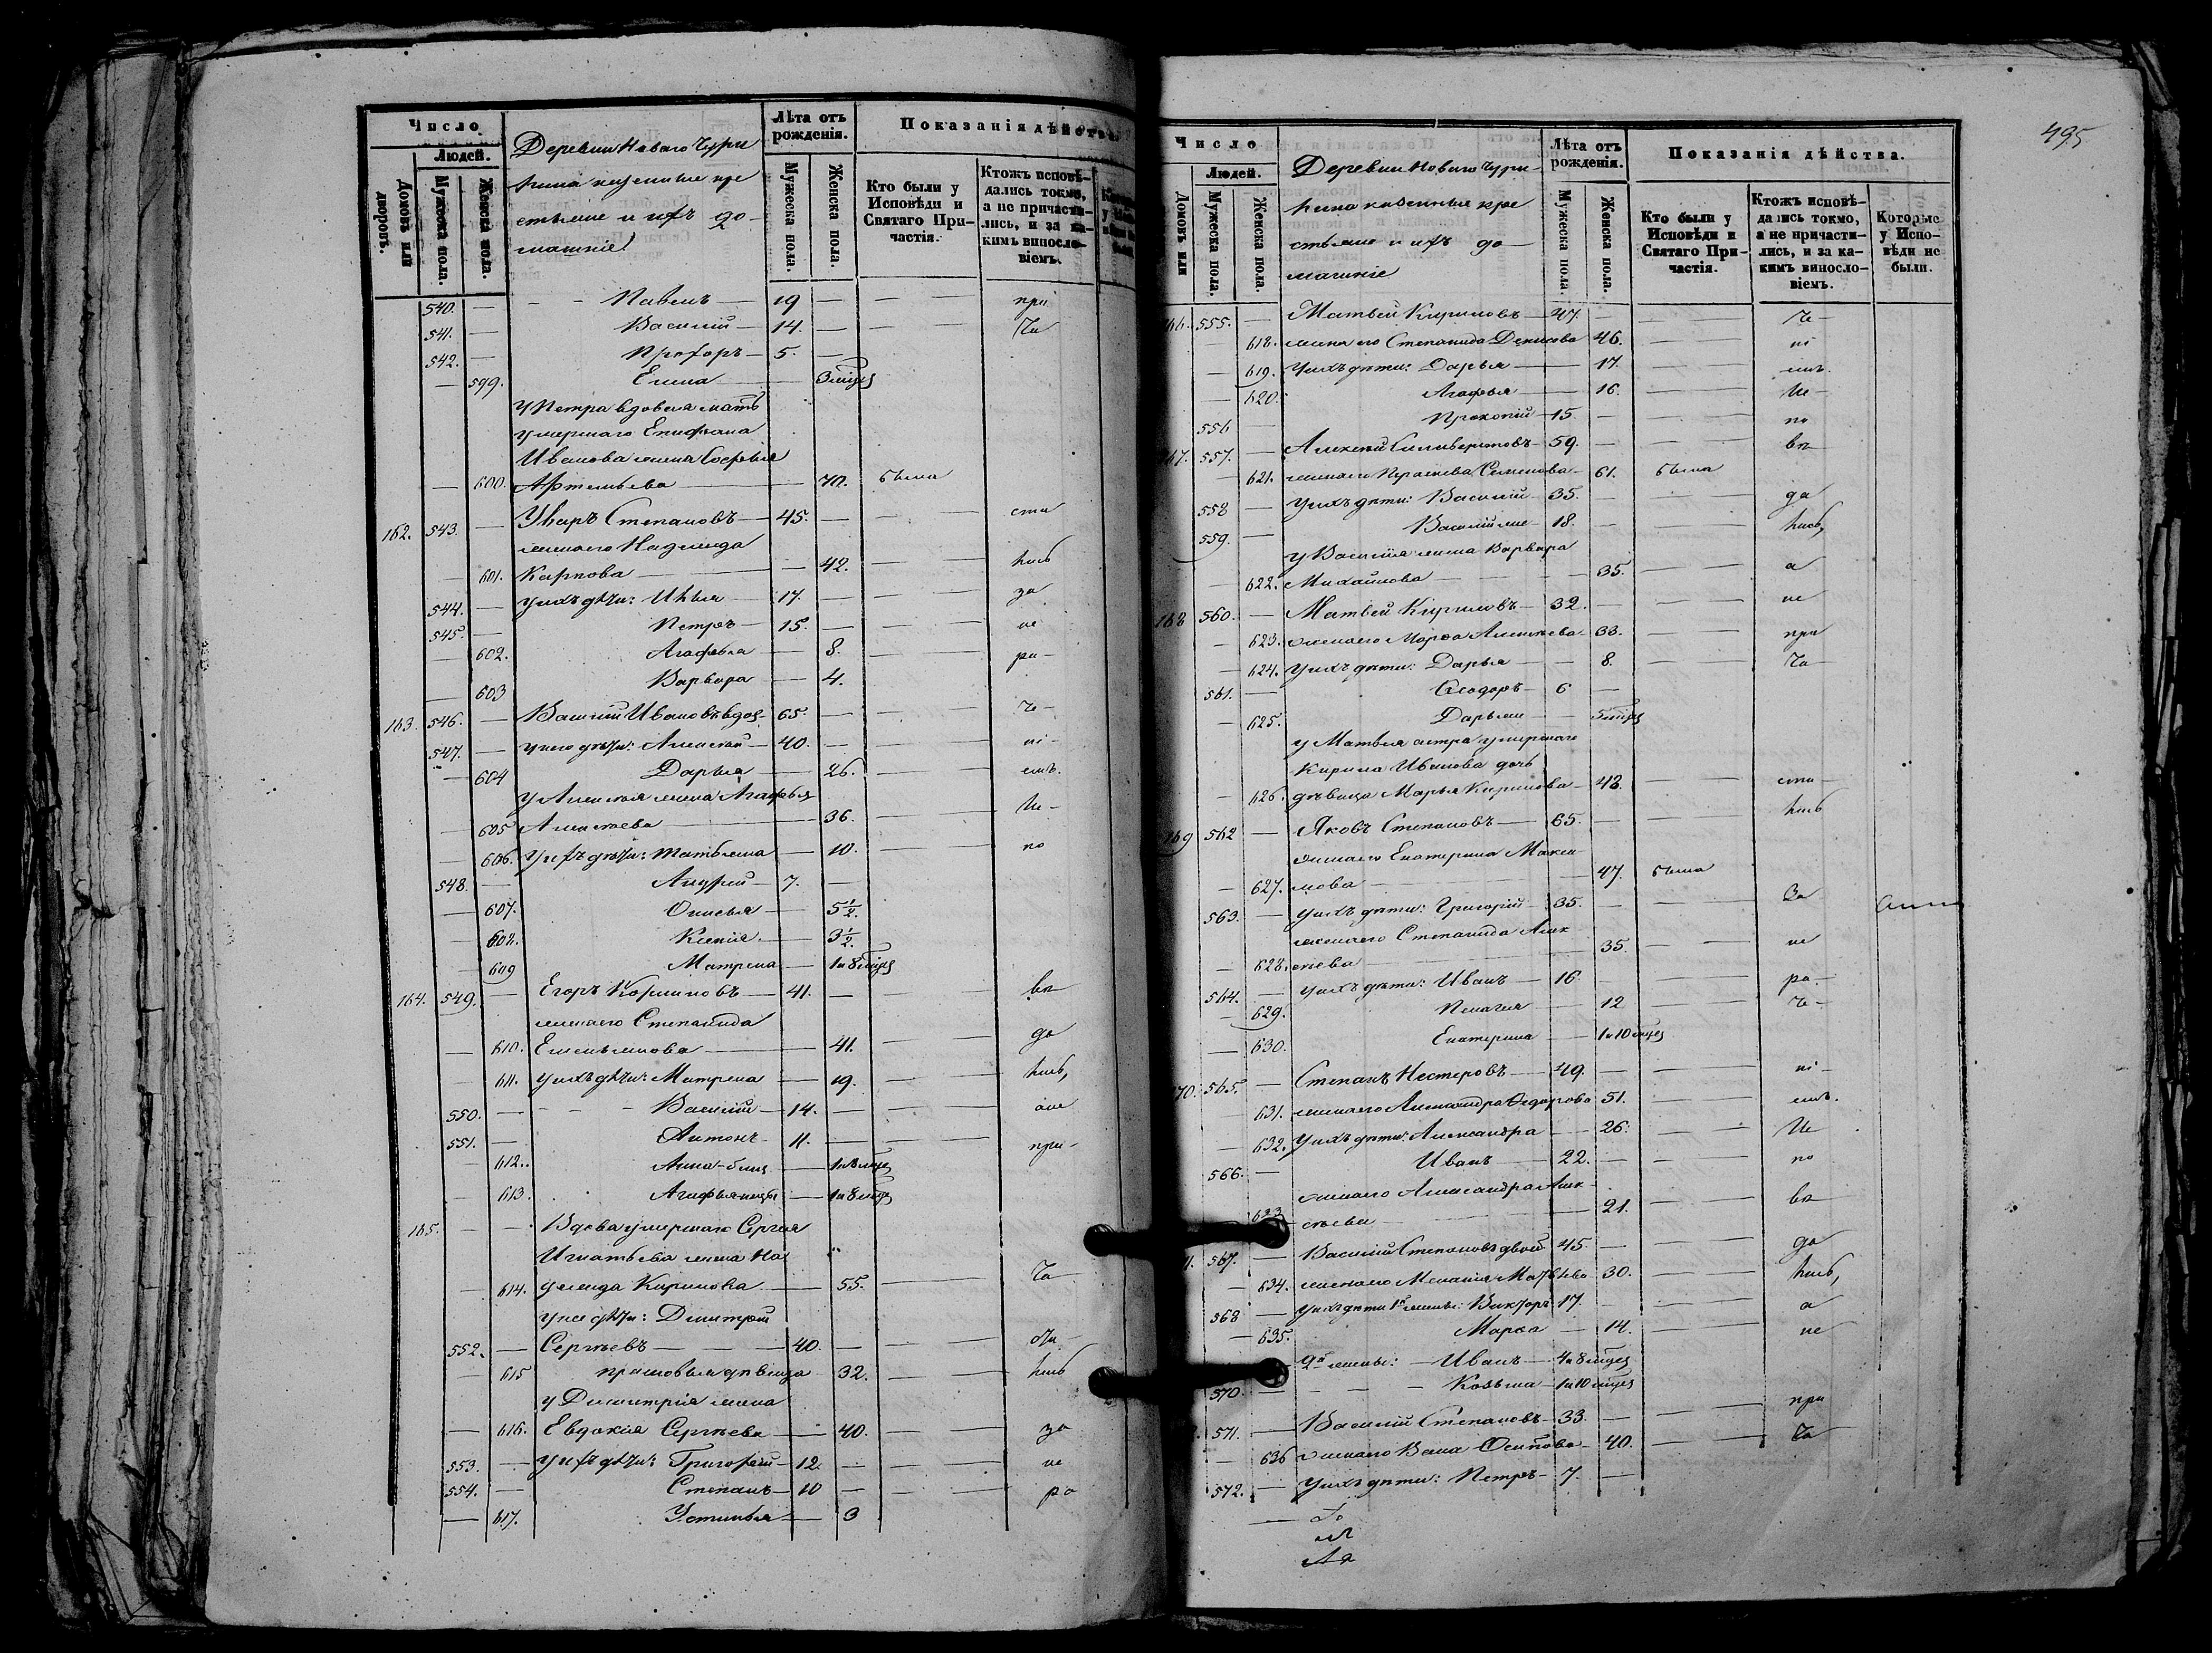 Число
Людей.
Домовъ или дворовъ.
Мужеска пола.
Женска пола.
Деревни Новаго Чури
кина казенные кре
стьяне и ихъ до
машніе
Лѣта отъ рожденія.
Мужеска пола.
Женска пола.
Показанія дѣйства.
Кто были у Исповѣди и Святаго Причастія.
Ктожъ исповѣдались токмо, а не причастились, и за какимъ винословіемъ.
540. — Павелъ — 19 — — при
541. — Василій — 14. — — ча
542. — Прохоръ — 5. —
— 599. Елена — 3 мѣсяц
у Петра вдовая мать
умершаго Епифана
Иванова жена Софья
— 600. Артемьева — 70. была
162. 543. — Уваръ Степановъ — 45. — — сти
жена его Надежда
— 601. Карпова — 42. — кись
544. — у нихъ дѣти: Илья — 17. — — за
545. — Петръ — 15. — — не
— 602. Агафья — 8. — ра
— 603 Варвара — 4.
163. 546. — Василій Ивановъ вдов — 65. — — че
547. — у него дѣти: Алексѣй — 40. — — ні
— 604 Дарья — 26. — емъ.
у Алексѣя жена Агафья
— 605 Алексѣева — 36. — Не
— 606. у нихъ дѣти: Татьяна — 10. — по
548. — Андрей — 7. —
— 607. Онисья — 5½.
— 608. Ксенія — 3½.
— 609 Матрена — 1 и 8 мѣсяц
164. 549. — Егоръ — 41. — вк
жена его Степанида
— 610. Емельянова — 41. — да
— 611. у нихъ дѣти: Матрена — 19. — кись,
550. — Василій — 14. —
551. — Антонъ — 11. — при
— 612. Анна — 1 и 8 мѣсяц
— 613. Агафья — 1 и 8 мѣсяц
165. — — Вдова умершаго Сергѣя
Игнатьева жена На
— 614. дежда Кирилова — 55. — ча
у нее дѣти: Димитрій
552. — Сергѣевъ — 40. —
— 615 дѣвица 32. — кись
у Димитрія жена
— 616. Евдокія Сергѣева — 40. — за
553. — у нихъ дѣти: Григорій — 12. — — не
554. — Степанъ — 10 — — ра
— 617. Устинья — 3
495
Число
Людей.
Домовъ или
Мужеска пола.
Женска пола.
Деревни Новаго Чури
кина казенные кре
стьяне и ихъ до
машніе
Лѣта отъ рожденія.
Мужеска пола.
Женска пола.
Показанія дѣйства.
Кто были у Исповѣди и Святаго Причастія.
Ктожъ исповѣдались токмо, а не причастились, и за какимъ винословіемъ.
Которые у Исповѣди не были.
66. 555. — Матвей Кириловъ — 47. — че
— 618. жена его Степанида Денисова 46. — ні
— 619. у нихъ дѣти: Дарья — 17. — емъ.
— 620. Агафья — 16. — Не
556 — Прокопій — 15. — по
67. 557. — Алексѣй Сильверстовъ — 59. — вк
— 621. жена его Семенова — 61. была
558 — у нихъ дѣти: Василій — 35. — да
559. — Василій же — 18. — кись,
у Василія жена Варвара
— 622. Михайлова — 35. — а
168 560. — Матвей Кириловъ — 32. — не
— 623. жена его Марѳа Алексѣева — 33. — при
— 624. у нихъ дѣти: Дарья — 8. — ча
561. — Ѳеодоръ — 6 —
— 625. Дарья же — 5 мѣсяц
у Матвея сестра умершаго
Кирила Иванова дочь
— 626. дѣвица Марья Кирилова — 48. — сти
169 562 — Яковъ Степановъ — 65. — кись
жена его Екатерина Макси
— 627. мова — 47. была
563. — у нихъ дѣти: Григорій — 35. — за
жена его Степанида Алек
— 628. сѣева — 35. — не
564. — у нихъ дѣти: Иванъ — 16. — ра
— 629. Пелагія — 12 — че
— 630. Екатерина — 1 и 10 мѣсяц
170. 565. — Степанъ Нестеровъ — 49. — ні
— 631. жена его Александра Ѳедорова 51. — емъ.
— 632. у нихъ дѣти: Александра — 26. — Не
566. — Иванъ — 22. — по
жена его Александра Алек
633 сѣева — 21. — вк
1. 567. — Василій Степановъ — 45. — да
— 634. жена его Меланія Матвеева 30. — кись,
568 — у нихъ дѣти 1й жены: Викторъ 17. — а
— 635. Марѳа — 14. — не
2й жены: — Иванъ — 4 и 8 мѣсяц
570. — Козьма — 1 и 10 мѣсяц
571. — Василій Степановъ — 33. — при
— 636 жена его Осипова — 40. — ча
572. — у нихъ дѣти: Петръ — 7. —